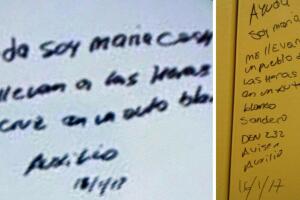 da soy maria cash
llevan a las Heras
cruz en un auto blan
Auxilio
18/1/17
Ayuda
soy maria
me llevan
un pueblo
Las Heras
en un aut
blanco
Sandero
DEN 232
Avisen
Auxilio
18/1/17